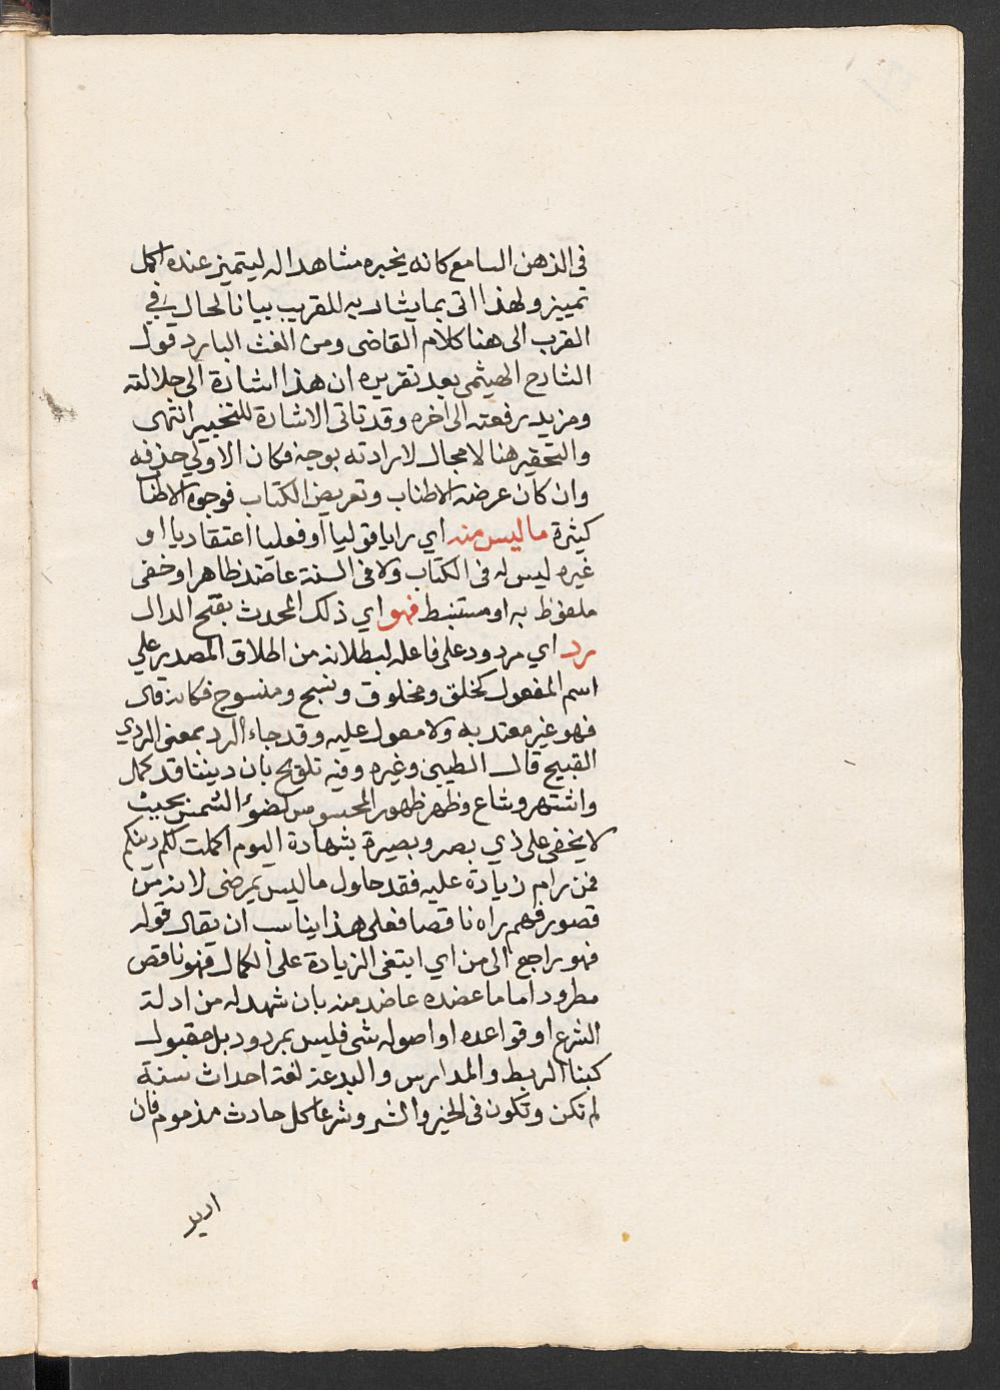 في الذهن السامع كانه يخبره مشاهدا له ليتميز عنده اكمل
تمييز ولهذا اتى بما يشار به للقريب بيانا لحاله في
القرب الى هنا كلام القاضي ومن الغث البارد قول
الشارح الهيثمي بعد تقريره ان هذا اشارة الى جلالته
ومزيد رفعته الى اخره وقد تاتي الاشارة للتحقير انتهى
والتحقير هنا لا مجال لارادته بوجه فكان الاولى حذفه
وان كان عرضه الاطناب وتعريض الكتاب فوجوه الاطنا
كثيرة ما ليس منه اي رايا قوليا او فعليا اعتقاديا او
غيره ليس له في الكتاب ولا في السنة عاضد ظاهر او خفي
ملفوظ به او مستنبط فهو اي ذلك المحدث بفتح الدال
رد اي مردود على فاعله لبطلانه من اطلاق المصدر علي
اسم المفعول كخلق ومخلوق ونسج ومنسوج فكانه قال
فهو غير معتد به ولا معول عليه وقد جاء الرد بمعنى الردي
القبيح قال الطيبي وغيره وفيه تلويح بان ديننا قد كمل
واشتهر وشاع وظهر ظهور المحسوس كضوء الشمس بحيث
لا يخفى على ذي بصر وبصيرة بشهادة اليوم اكملت لكم دينكم
فمن رام زيادة عليه فقد حاول ما ليس بمرضى لانه من
قصور فهم راه ناقصا فعلى هذا يناسب ان يقال قوله
فهو راجع الى من اي ابتغى الزيادة على الكمال فهو ناقص
مطرود اما ما عضده عاضد منه بان شهد له من ادلة
الشرع او قواعده او اصوله شي فليس بمردود بل مقبول
كبناء الربط والمدارس والبدعة لغة احداث سنة
لم تكن وتكون في الخير والشر وشرعا كل حادث مذموم فان
اريد